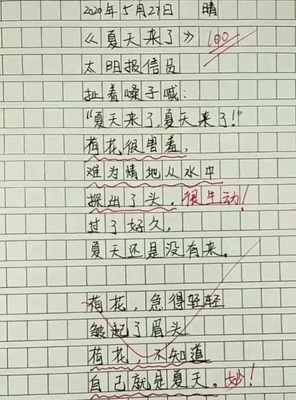 2020年5月27日 晴
《夏天来了》 100
太明报信员
扯着嗓子喊:
"夏天来了,夏天来了!"
荷花很害羞,
难为情地从水中
探出了头。很生动!
过了好久,
夏天还是没有来。
荷花,急得轻轻
皱起了眉头
荷花,不知道
自己就是夏天。妙!